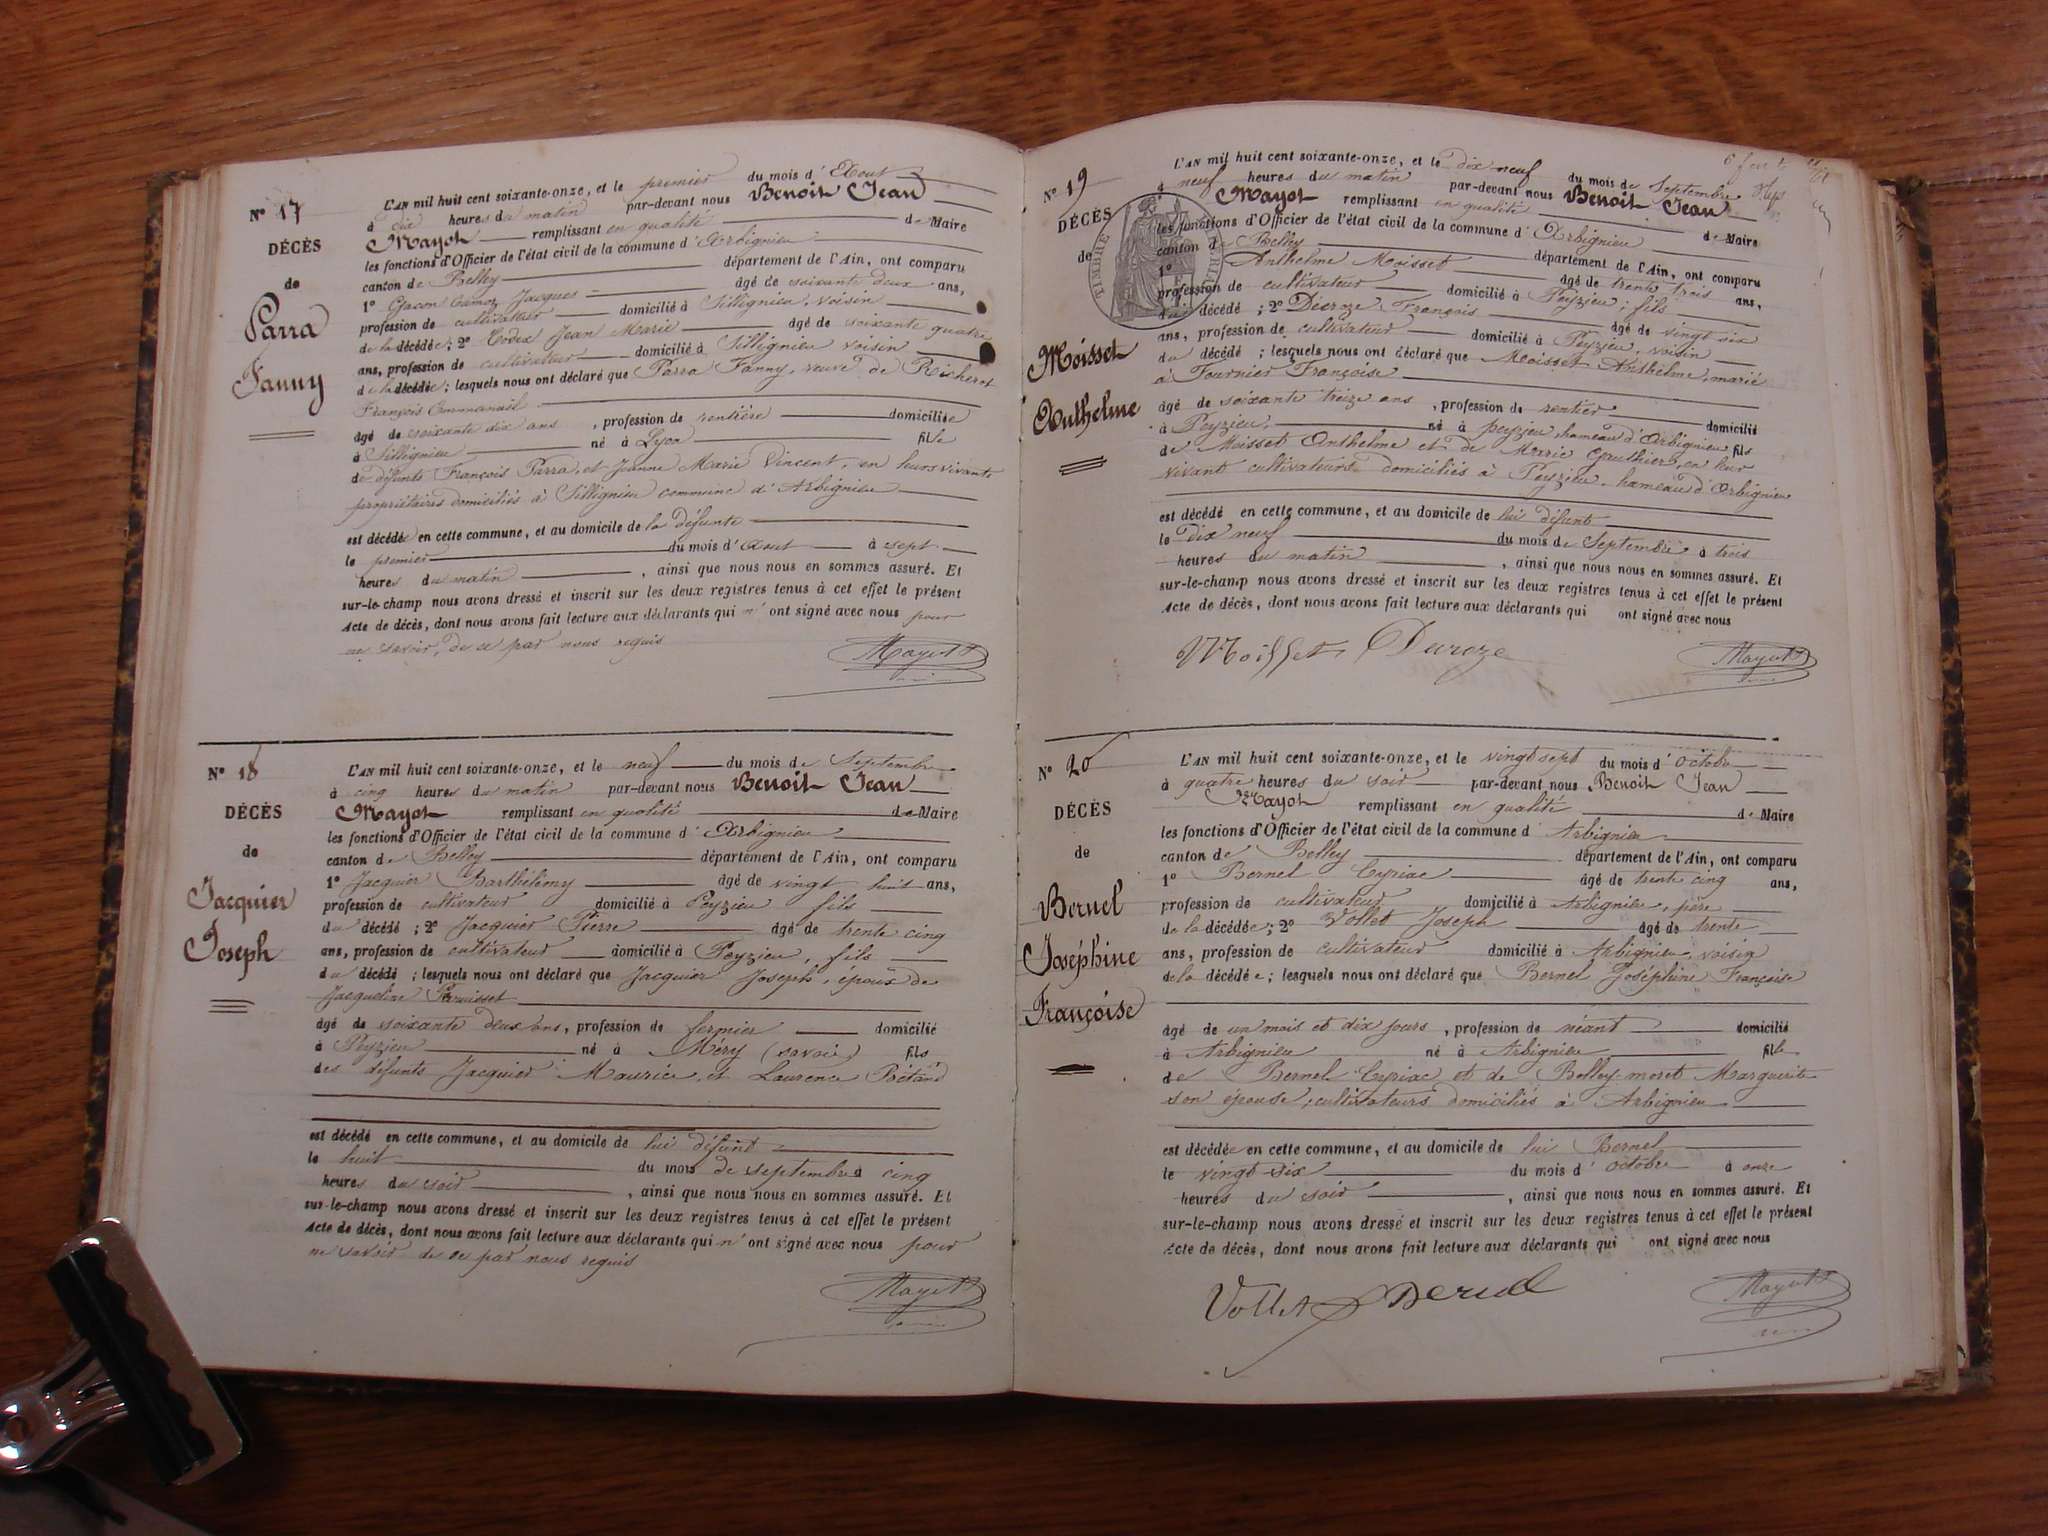 N° 17
DÉCÈS
de
Parra
Fanny
L'AN mil huit cent soixante-onze, et le premier du mois d'Aout
à dix heures du matin par-devant nous Benoit Jean
Mayot remplissant en qualité de Maire
les fonctions d'Officier de l'état civil de la commune d'Arbignieu
canton de Belley département de l'Ain, ont comparu
1° Gacon Camoz Jacques âgé de soixante deux ans,
profession de cultivateur domicilié à Sillignieu, voisin
de la décédée ; 2° Jean Marie âgé de soixante quatre
ans, profession de cultivateur domicilié à Sillignieu voisin
de la décédée ; lesquels nous ont déclaré que Parra Fanny, veuve de Richerot
François
âgé de soixante dix ans , profession de rentière domiciliée
à Sillignieu né à Lyon fille
de défunts François Parra, et Jeanne Marie Vincent, en leurs vivants
propriétaires domiciliés à Sillignieu commune d'Arbignieu
est décédée en cette commune, et au domicile de la défunte
le premier du mois d'Aout à sept
heures du matin , ainsi que nous nous en sommes assuré. Et
sur-le-champ nous avons dressé et inscrit sur les deux registres tenus à cet effet le présent
Acte de décès, dont nous avons fait lecture aux déclarants qui n'ont signé avec nous pour
ne savoir, de ce par nous requis
Mayot
N° 18
DÉCÈS
de
Jacquier
Joseph
L'AN mil huit cent soixante-onze, et le neuf du mois de Septembre
à cinq heures du matin par-devant nous Benoit Jean
Mayot remplissant en qualité de Maire
les fonctions d'Officier de l'état civil de la commune d'Arbignieu
canton de Belley département de l'Ain, ont comparu
1° Jacquier Barthélemy âgé de vingt huit ans,
profession de cultivateur domicilié à Peyzieu fils
du décédé ; 2° Jacquier Pierre âgé de trente cinq
ans, profession de cultivateur domicilié à Peyzieu, fils
du décédé ; lesquels nous ont déclaré que Jacquier Joseph, époux de
Jacqueline
âgé de soixante deux ans, profession de fermier domicilié
à Peyzieu né à Méry (savoie) fils
des défunts Jacquier Maurice, et Laurence Bétand
est décédé en cette commune, et au domicile de lui défunt
le huit du mois de septembre à cinq
heures du soir , ainsi que nous nous en sommes assuré. Et
sur-le-champ nous avons dressé et inscrit sur les deux registres tenus à cet effet le présent
Acte de décès, dont nous avons fait lecture aux déclarants qui n'ont signé avec nous pour
ne savoir de ce par nous requis
Mayot
N° 19
DÉCÈS
de
Moisset
Anthelme
TIMBRE
L'AN mil huit cent soixante-onze, et le dix neuf du mois de Septembre
à neuf heures du matin par-devant nous Benoit Jean
Mayot remplissant en qualité de Maire
les fonctions d'Officier de l'état civil de la commune d'Arbignieu
canton de Belley département de l'Ain, ont comparu
1° Anthelme Moisset âgé de trente trois ans,
profession de cultivateur domicilié à Peyzieu ; fils
du décédé ; 2° Décroze François âgé de vingt six
ans, profession de cultivateur domicilié à Peyzieu, voisin
du décédé ; lesquels nous ont déclaré que Moisset Anthelme, marié
à Fournier Françoise
âgé de soixante treize ans , profession de rentier domicilié
à Peyzieu, né à peyzieu, hameau d'Arbignieu fils
de Moisset Anthelme et de Marie Gauthier, en leur
vivant cultivateurs domiciliés à Peyzieu, hameau d'Arbignieu
est décédé en cette commune, et au domicile de lui défunt
le dix neuf du mois de Septembre à trois
heures du matin , ainsi que nous nous en sommes assuré. Et
sur-le-champ nous avons dressé et inscrit sur les deux registres tenus à cet effet le présent
Acte de décès, dont nous avons fait lecture aux déclarants qui ont signé avec nous
Moisset Decroze Mayot
N° 20
DÉCÈS
de
Bernel
Joséphine
Françoise
L'AN mil huit cent soixante-onze, et le vingt sept du mois d'octobre
à quatre heures du soir par-devant nous Benoit Jean
Mayot remplissant en qualité de Maire
les fonctions d'Officier de l'état civil de la commune d Arbignieu
canton de Belley département de l'Ain, ont comparu
1° Bernel Cyriac âgé de trente cinq ans,
profession de cultivateur domicilié à Arbignieu, père
de la décédée ; 2° Vollet Joseph âgé de trente
ans, profession de cultivateur domicilié à Arbignieu, voisin
de la décédée ; lesquels nous ont déclaré que Bernel Joséphine Françoise
âgé de un mois et dix jours , profession de néant domicilié
à Arbignieu né à Arbignieu fille
de Bernel Cyriac et de Belley-moret Marguerite
son épouse, cultivateurs domiciliés à Arbignieu
est décédée en cette commune, et au domicile de lui Bernel
le vingt-six du mois d'octobre à onze
heures du soir , ainsi que nous nous en sommes assuré. Et
sur-le-champ nous avons dressé et inscrit sur les deux registres tenus à cet effet le présent
Acte de décès, dont nous avons fait lecture aux déclarants qui ont signé avec nous
Vollet Bernel Mayot